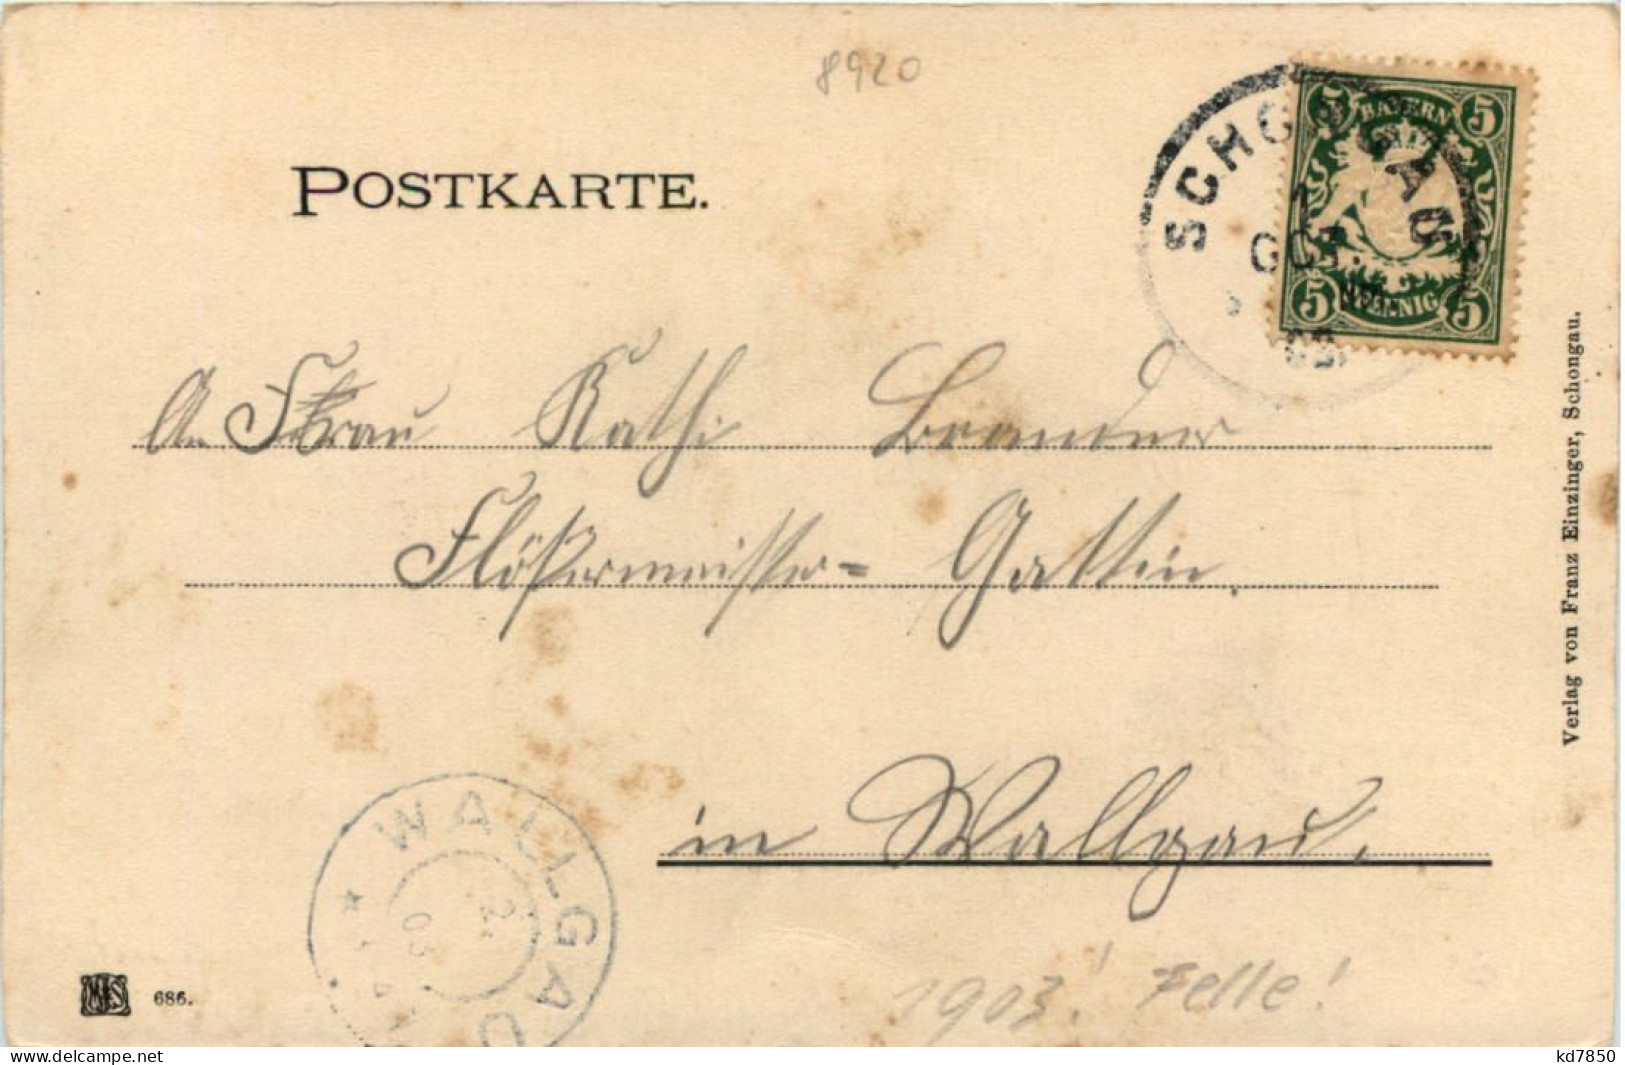 8920
POSTKARTE.
SCHONGAU
OCT.
03
5 BAYERN 5
5 PFENNIG 5
An Frau Kathi Brandner
Flößermeisters-Gattin.
in Wallgau.
WALLGAU
2.
03
1903! Felle!
686.
Verlag von Franz Einzinger, Schongau.
www.delcampe.net
kd7850